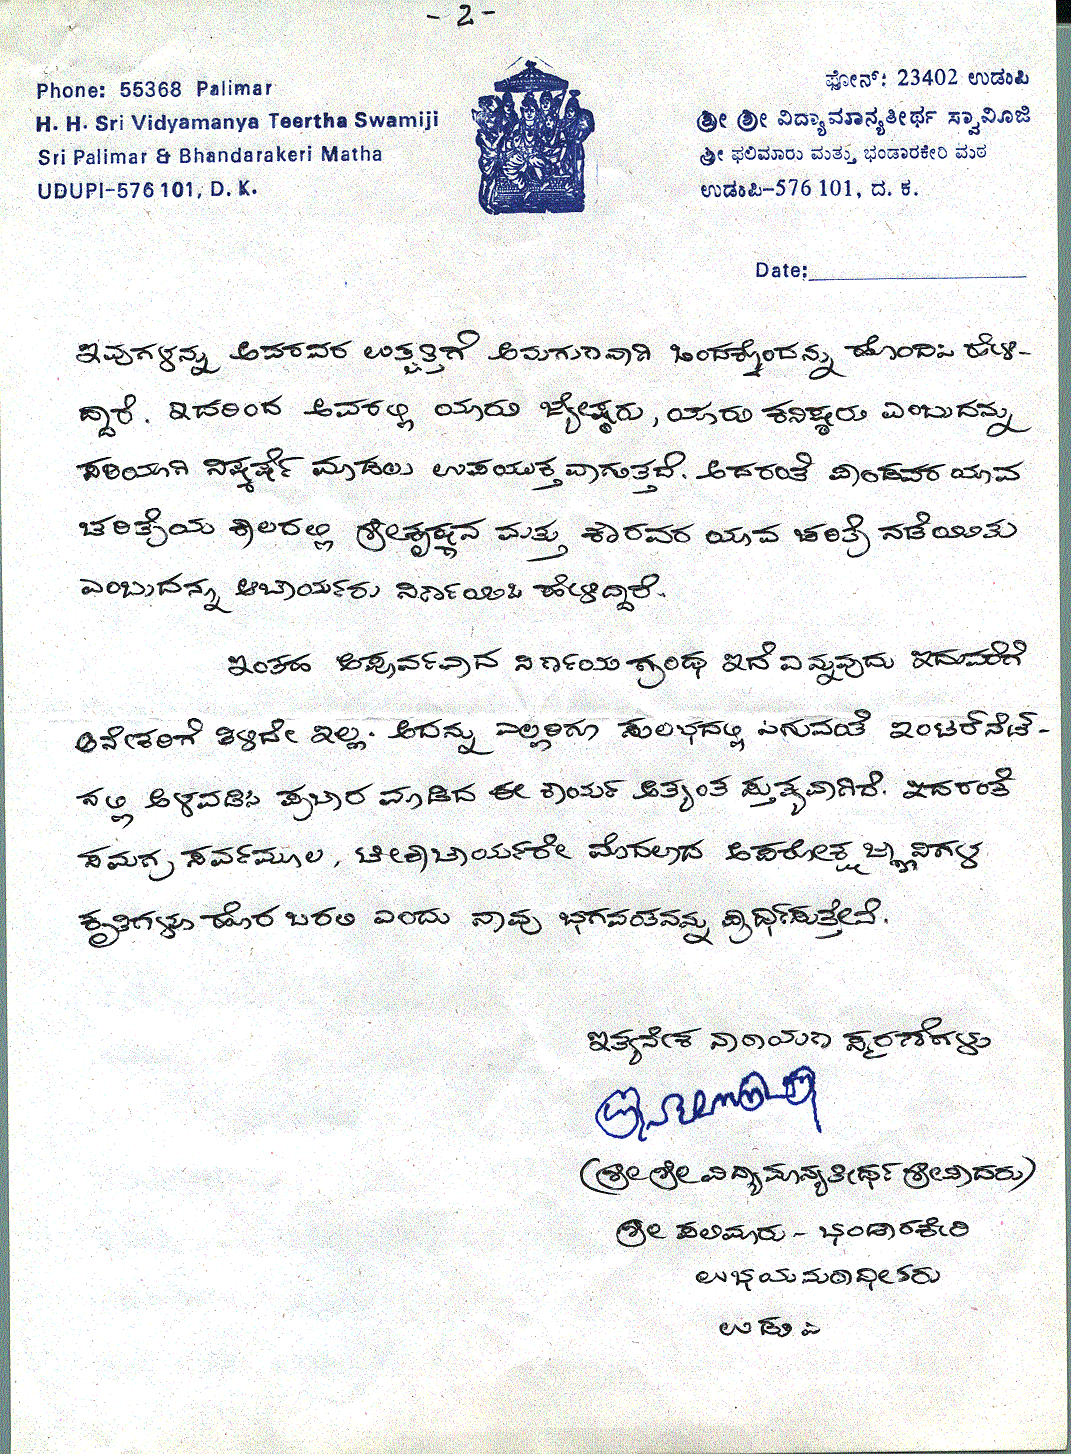 - 2 -
Phone: 55368 Palimar
H. H. Sri Vidyamanya Teertha Swamiji
Sri Palimar & Bhandarakeri Matha
UDUPI-576 101, D. K.
ಫೋನ್: 23402 ಉಡುಪಿ
ಶ್ರೀ ಶ್ರೀ ವಿದ್ಯಾಮಾನ್ಯತೀರ್ಥ ಸ್ವಾಮೀಜಿ
ಶ್ರೀ ಫಲಿಮಾರು ಮತ್ತು ಭಂಡಾರಕೇರಿ ಮಠ
ಉಡುಪಿ-576 101, ದ. ಕ.
Date:
ಇವುಗಳನ್ನು ಅವರವರ ಉತ್ಪತ್ತಿಗೆ ಅನುಗುಣವಾಗಿ ಒಂದಕ್ಕೊಂದನ್ನು ಹೊಂದಿಸಿ ಹೇಳಿ-
ದ್ದಾರೆ. ಇದರಿಂದ ಅವರಲ್ಲಿ ಯಾರು ಜ್ಯೇಷ್ಠರು, ಯಾರು ಕನಿಷ್ಠರು ಎಂಬುದನ್ನು
ಸರಿಯಾಗಿ ನಿಷ್ಕರ್ಷೆ ಮಾಡಲು ಉಪಯುಕ್ತವಾಗುತ್ತದೆ. ಅದರಂತೆ ಪಾಂಡವರ ಯಾವ
ಚರಿತ್ರೆಯ ಕಾಲದಲ್ಲಿ ಶ್ರೀಕೃಷ್ಣನ ಮತ್ತು ಕೌರವರ ಯಾವ ಚರಿತ್ರೆ ನಡೆಯಿತು
ಎಂಬುದನ್ನು ಆಚಾರ್ಯರು ನಿರ್ಣಯಿಸಿ ಹೇಳಿದ್ದಾರೆ.
ಇಂತಹ ಅಪೂರ್ವವಾದ ನಿರ್ಣಯ ಗ್ರಂಥ ಇದೆ ಎನ್ನುವುದು ಇದುವರೆಗೆ
ಅನೇಕರಿಗೆ ತಿಳಿದೇ ಇಲ್ಲ. ಅದನ್ನು ಎಲ್ಲರಿಗೂ ಸುಲಭದಲ್ಲಿ ಸಿಗುವಂತೆ ಇಂಟರ್‌ನೆಟ್-
ನಲ್ಲಿ ಅಳವಡಿಸಿ ಪ್ರಚಾರ ಮಾಡಿದ ಈ ಕಾರ್ಯ ಅತ್ಯಂತ ಸ್ತುತ್ಯವಾಗಿದೆ. ಇದರಂತೆ
ಸಮಗ್ರ ಸರ್ವಮೂಲ, ಟೀಕಾಚಾರ್ಯರೇ ಮೊದಲಾದ ಅಪರೋಕ್ಷ ಜ್ಞಾನಿಗಳ
ಕೃತಿಗಳೂ ಹೊರ ಬರಲಿ ಎಂದು ನಾವು ಭಗವಂತನನ್ನು ಪ್ರಾರ್ಥಿಸುತ್ತೇವೆ.
ಇತ್ಯನೇಕ ನಾರಾಯಣ ಸ್ಮರಣೆಗಳು
(ಶ್ರೀ ಶ್ರೀ ವಿದ್ಯಾಮಾನ್ಯತೀರ್ಥ ಶ್ರೀಪಾದರು)
ಶ್ರೀ ಪಲಿಮಾರು - ಭಂಡಾರಕೇರಿ
ಉಭಯ ಮಠಾಧೀಶರು
ಉಡುಪಿ